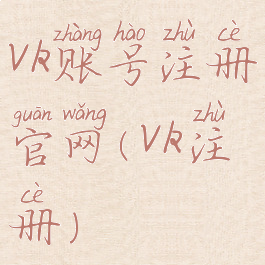 zhàng hào zhù cè
VR账号注册
guān wǎng zhù
官网(VR注
cè
册)